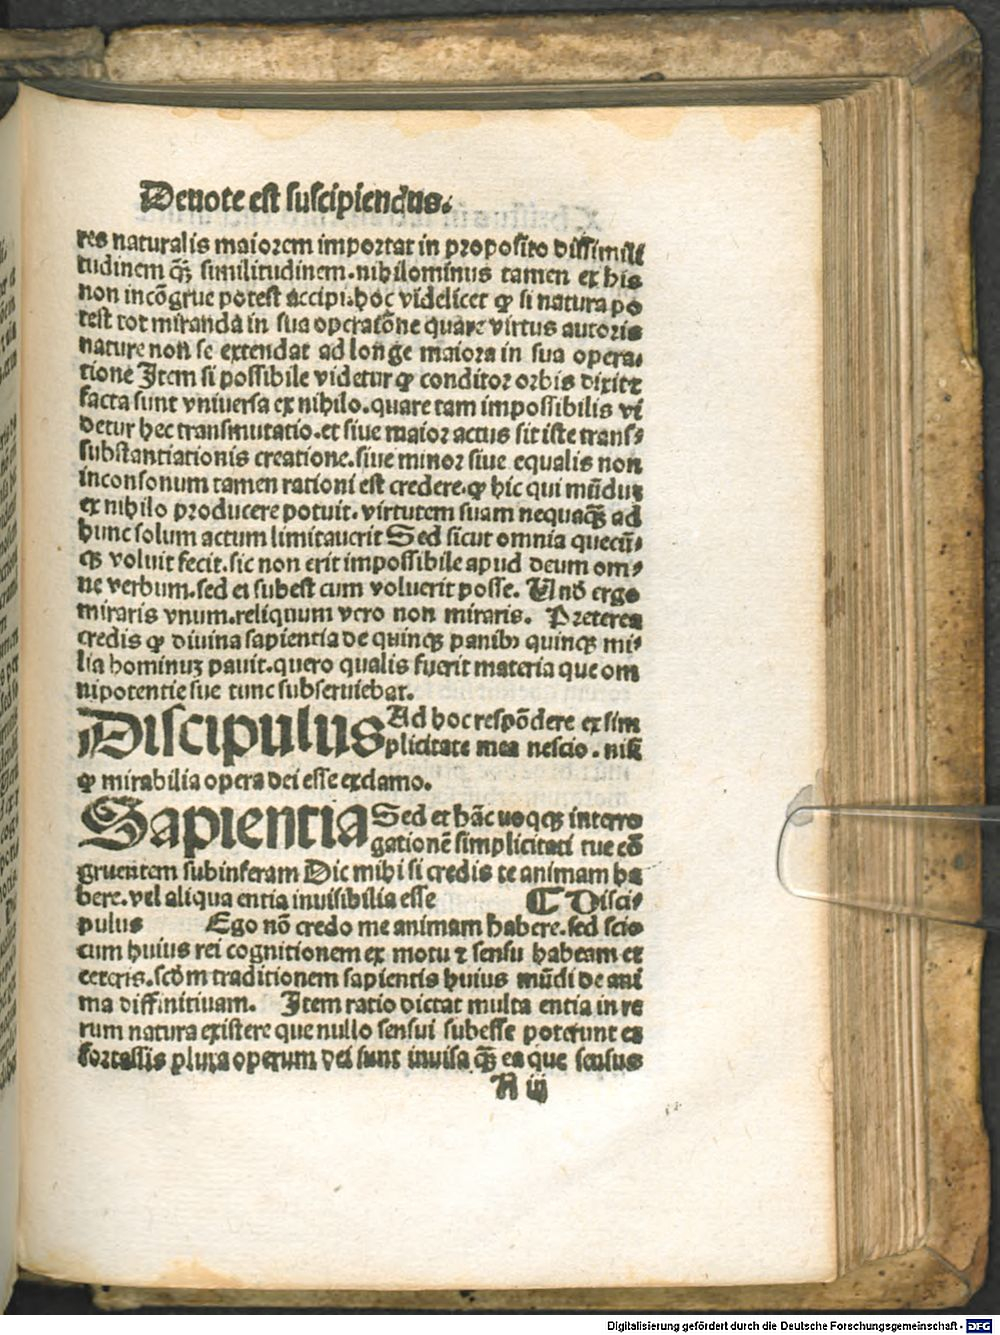 Deuote est suscipiendus.
res naturalis maiorem importat in proposito dissimili
tudinem q̄ꝫ similitudinem. nihilominus tamen ex his
non incōgrue potest accipi. hoc videlicet ꝙ si natura po
test tot miranda in sua operatōne quare virtus autoris
nature non se extendat ad longe maiora in sua opera⸗
tione Item si possibile videtur ꝙ conditor orbis dixit ⁊
facta sunt vniuersa ex nihilo. quare tam impossibilis vi
detur hec transmutatio. et siue maior actus sit iste trans⸗
substantiationis creatione. siue minor siue equalis non
inconsonum tamen rationi est credere. ꝙ hic qui mūdus
ex nihilo producere potuit. virtutem suam nequaq̄ꝫ ad
hunc solum actum limitauerit Sed sicut omnia quecū⸗
qꝫ voluit fecit. sic non erit impossibile apud deum om⸗
ne verbum. sed ei subest cum voluerit posse. Unū ergo
miraris vnum. reliquum vero non miraris. Preterea
credis ꝙ diuina sapientia de quinqꝫ panibꝰ quinqꝫ mi⸗
lia hominuꝫ pauit. quero qualis fuerit materia que om
nipotentie sue tunc subseruiebat.
Discipulus Ad hoc respōdere ex sim
plicitate mea nescio. nisi
ꝙ mirabilia opera dei esse exclamo.
Sapientia Sed et hāc uoqꝫ interro
gationē simplicitati tue cō
gruentem subinferam Dic mihi si credis te animam ha
bere. vel aliqua entia inuisibilia esse ¶ Disci⸗
pulus Ego nō credo me animam habere. sed scio
cum huius rei cognitionem ex motu ⁊ sensu habeam et
ceteris. scdm̄ traditionem sapientis huius mūdi de ani
ma diffinitiuam. Item ratio dictat multa entia in re
rum natura existere que nullo sensui subesse poterunt et
fortassis plura operum dei sunt inuisa q̄ꝫ ea que sensus
A iij
Digitalisierung gefördert durch die Deutsche Forschungsgemeinschaft - DFG